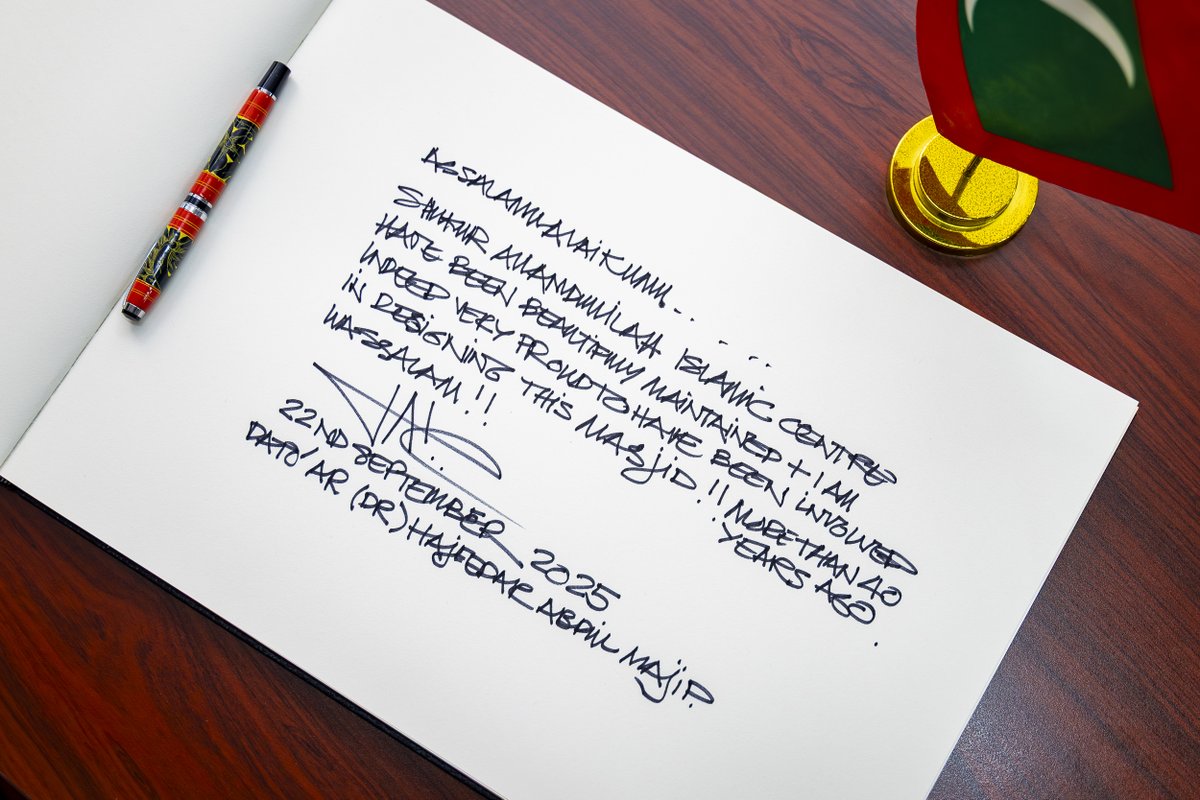 ASSALAMMUALAIKUMM... ...
SHUKUR ALLAMDULLILAH ISLAMIC CENTRE
HAVE BEEN BEAUTIFULLY MAINTAINED + I AM
INDEED VERY PROUD TO HAVE BEEN INVOLVED
IN DESIGNING THIS MASJID.!! MORE THAN 40
WASSALAM!! YEARS AGO.
22ND SEPTEMBER 2025
DATO/AR (DR) HAJEEDAR ABDUL MAJID.